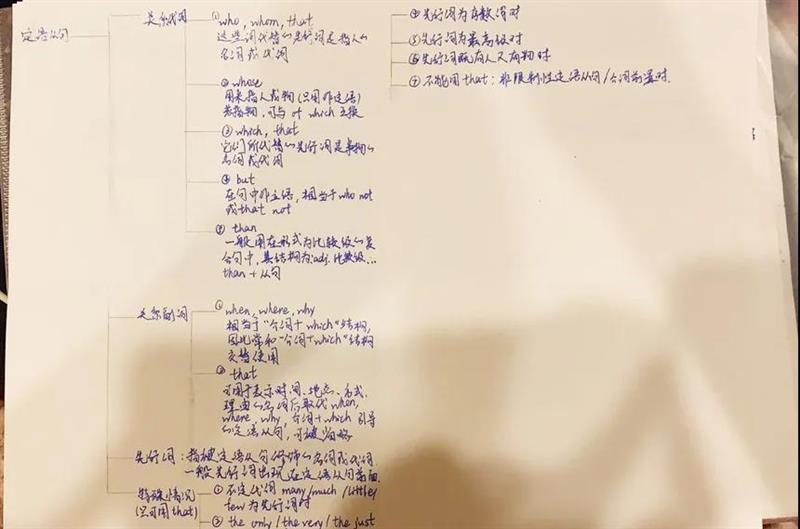 定语从句
关系代词
① who, whom, that
这些词代替的先行词是指人的
名词或代词
② whose
用来指人或物(只用作定语)
若指物,可与 of which 互换
③ which, that
它们所代替的先行词是事物的
名词或代词
④ but
在句中作主语,相当于who not
或that not
⑤ than
一般用在形式为比较级的复
合句中,其结构为:adj.比较级...
than+从句
关系副词
① when, where, why
相当于“介词+which”结构,
因此常和“介词+which”结构
交替使用
② that
可用于表示时间、地点、方式、
理由的名词后取代when,
where, why, 介词+which 引导
的定语从句,可被省略
先行词:指被定语从句修饰的名词或代词
一般先行词出现在定语从句前面.
特殊情况
(只可用that)
① 不定代词 many/much/little/
few为先行词时
② the only/the very/the just
④ 先行词为序数词时
⑤ 先行词为最高级时
⑥ 先行词既有人又有物时
⑦ 不能用that:非限制性定语从句/介词前置时.